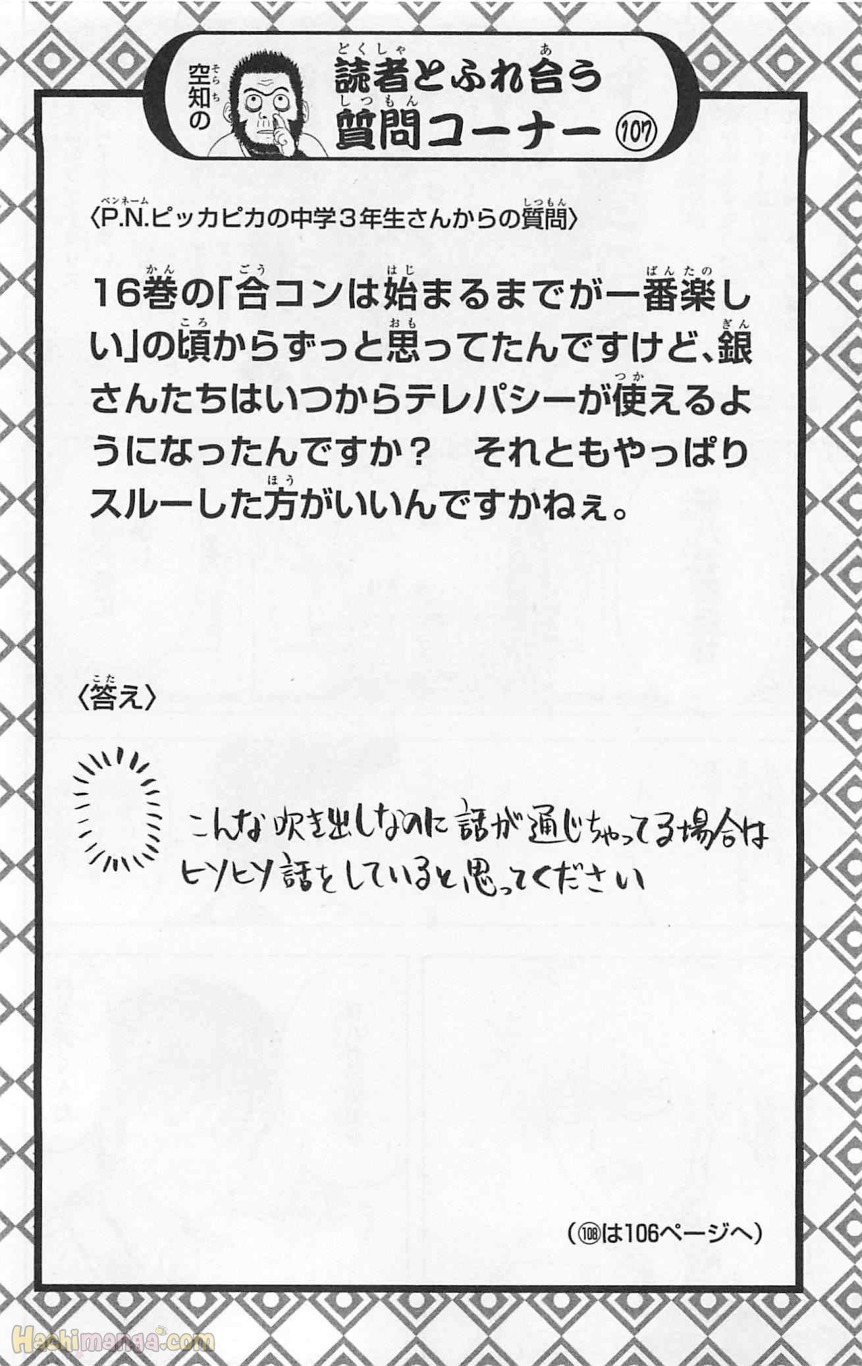 空知の
そらち
どくしゃ あ
読者とふれ合う
しつもん
質問コーナー 107
ペンネーム しつもん
〈P.N.ピッカピカの中学3年生さんからの質問〉
かん ごう はじ ばんたの
16巻の「合コンは始まるまでが一番楽し
ころ おも ぎん
い」の頃からずっと思ってたんですけど、銀
つか
さんたちはいつからテレパシーが使えるよ
うになったんですか?　それともやっぱり
ほう
スルーした方がいいんですかねぇ。
こた
〈答え〉
こんな吹き出しなのに話が通じちゃってる場合は
ヒソヒソ話をしていると思ってください
(108は106ページへ)
Hachimanga.com